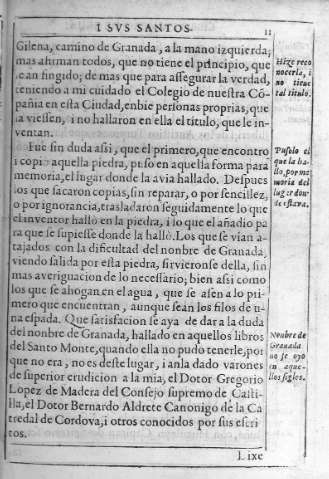 I SVS SANTOS.
11
Gilena, camino de Granada, a la mano izquierda;
mas afirman todos, que no tiene el principio, que
lean fingido; de mas que para assegurar la verdad,
teniendo a mi cuidado el Colegio de nuestra Cō-
pañia en esta Ciudad, enbie personas proprias, que
la viessen, i no hallaron en ella el titulo, que le in-
ventan.
Hize reco
nocerla, i
no tiene
tal titulo.
Fue sin duda assi, que el primero, que encontro
i copiò aquella piedra, puso en aquella forma para
memoria, el lugar donde la avia hallado. Despues
los que sacaron copias, sin reparar, o por senzillez,
o por ignorancia, trasladaron seguidamente lo que
el inventor hallò en la piedra, i lo que el añadio pa
ra que se supiesse donde la hallò. Los que se vian a-
tajados con la dificultad del nonbre de Granada,
viendo salida por esta piedra, sirvieronse della, sin
mas averiguacion de lo necessario; bien assi como
los que se ahogan en el agua, que se asen a lo pri-
mero que encuentran, aunque sean los filos de u-
na espada. Que satisfacion se aya de dar a la duda
del nonbre de Granada, hallado en aquellos libros
del Santo Monte, quando ella no pudo tenerle, por
que no era, no es deste lugar, i anla dado varones
de superior erudicion a la mia, el Dotor Gregorio
Lopez de Madera del Consejo supremo de Casti-
lla, el Dotor Bernardo Aldrete Canonigo de la Ca
tredal de Cordova, i otros conocidos por sus escri
tos.
Pusolo el
que la ha-
llo, por me
moria del
lugar don
de estava.
Nonbre de
Granada
no se oyo
en aque-
llos siglos.
Dixe